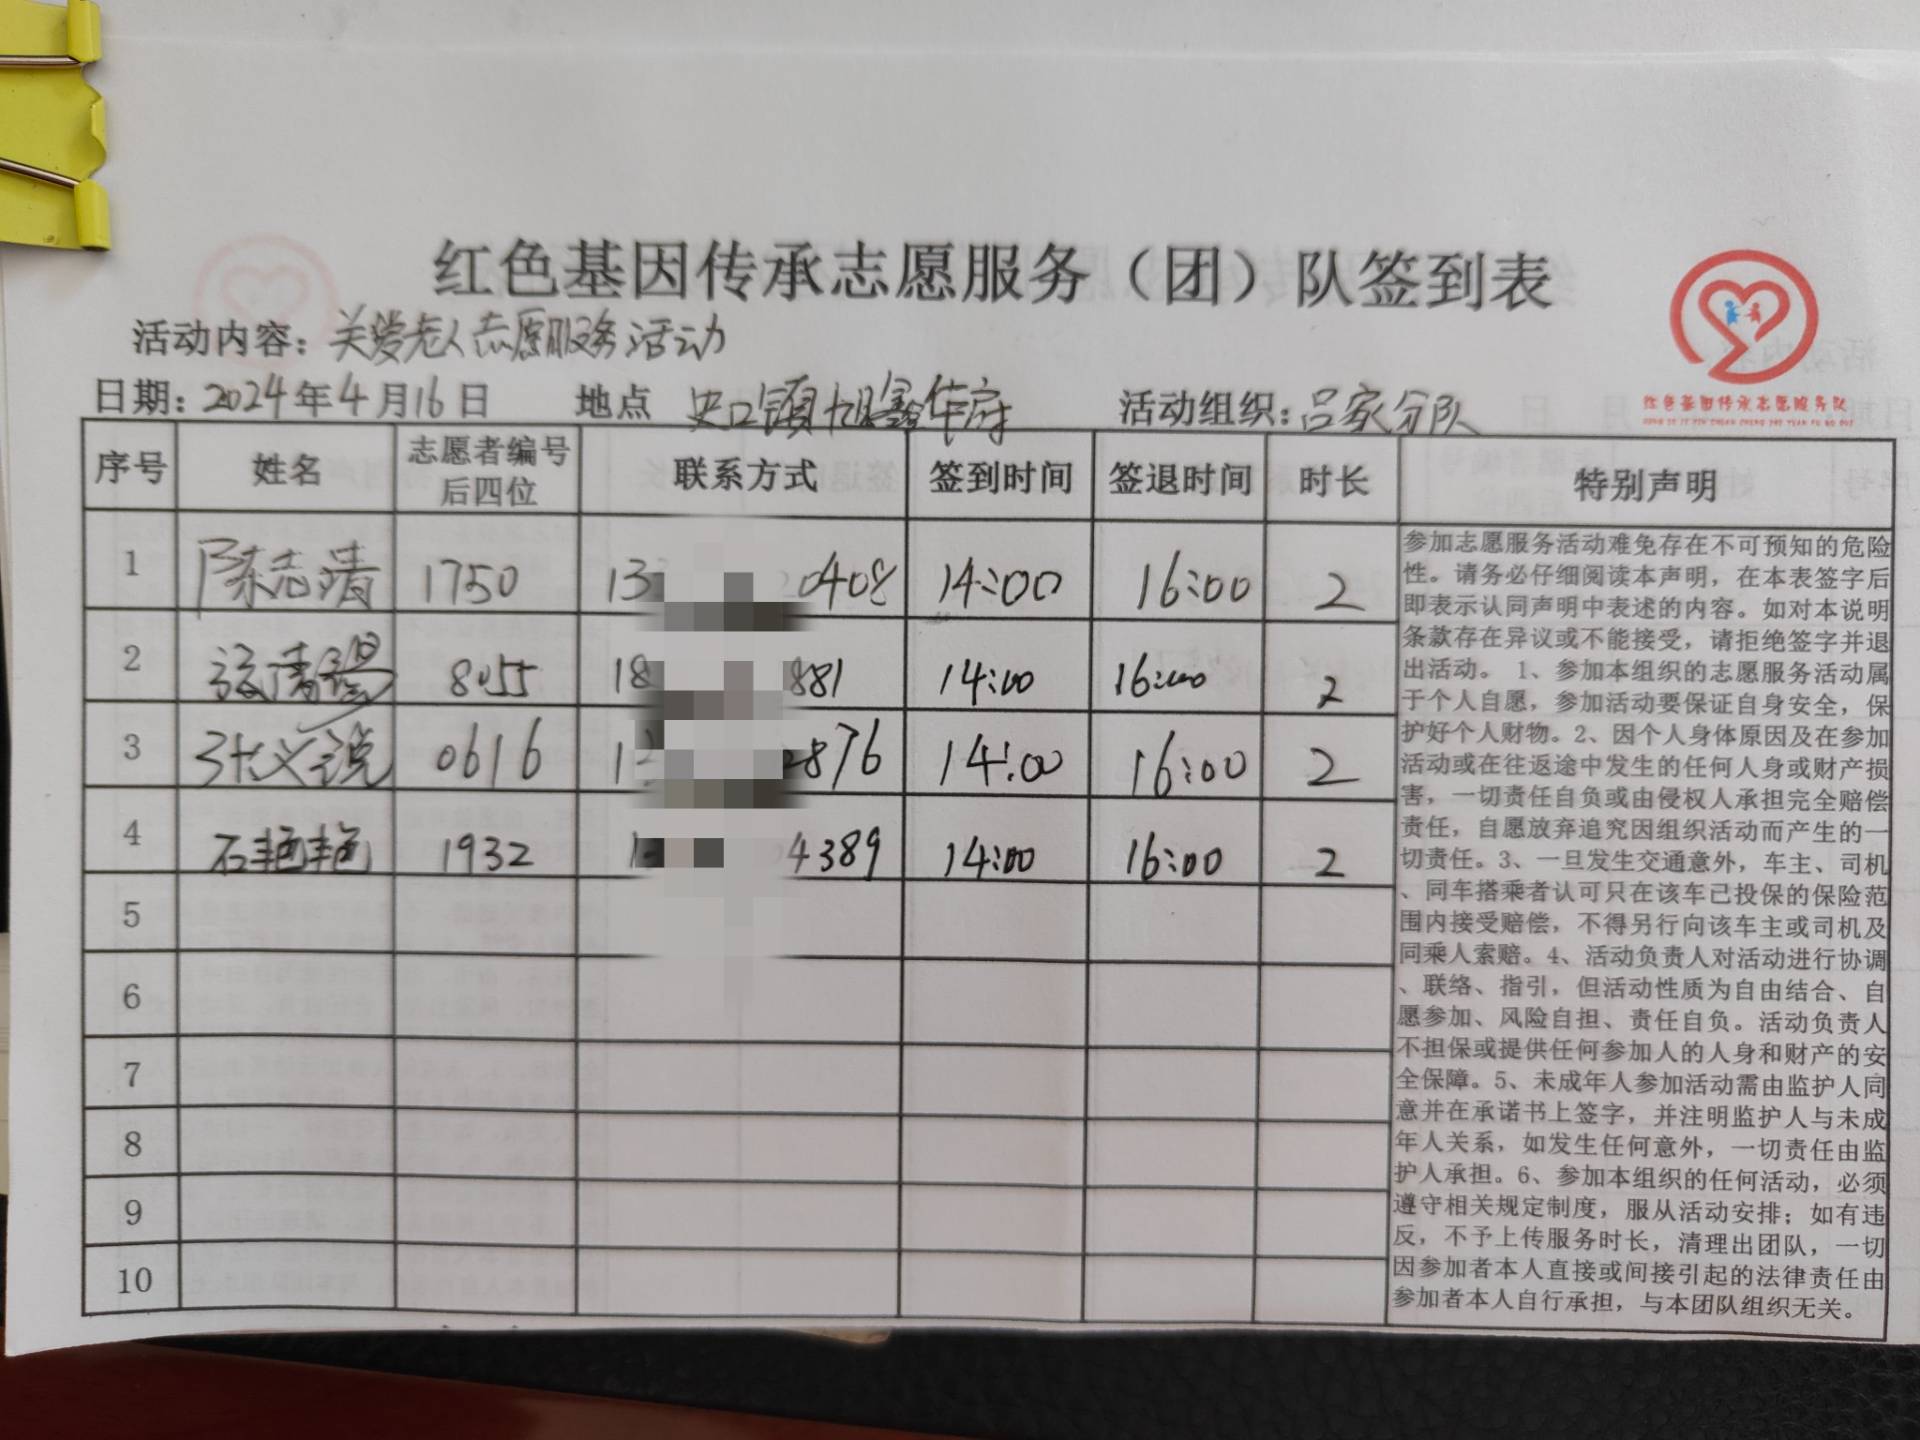 红色基因传承志愿服务（团）队签到表
活动内容：关爱老人志愿服务活动
日期：2024年4月16日 地点 史口镇旭鑫华府 活动组织：吕家分队
红色基因传承志愿服务队
序号 姓名 志愿者编号后四位 联系方式 签到时间 签退时间 时长 特别声明
1 陈志靖 1750 13 0408 14:00 16:00 2
2 8055 18 881 14:00 16:00 2
3 张义锐 0616 1 2876 14:00 16:00 2
4 石艳艳 1932 1 4389 14:00 16:00 2
5
6
7
8
9
10
参加志愿服务活动难免存在不可预知的危险
性。请务必仔细阅读本声明，在本表签字后
即表示认同声明中表述的内容。如对本说明
条款存在异议或不能接受，请拒绝签字并退
出活动。 1、参加本组织的志愿服务活动属
于个人自愿，参加活动要保证自身安全，保
护好个人财物。2、因个人身体原因及在参加
活动或在往返途中发生的任何人身或财产损
害，一切责任自负或由侵权人承担完全赔偿
责任，自愿放弃追究因组织活动而产生的一
切责任。3、一旦发生交通意外，车主、司机
、同车搭乘者认可只在该车已投保的保险范
围内接受赔偿，不得另行向该车主或司机及
同乘人索赔。4、活动负责人对活动进行协调
、联络、指引，但活动性质为自由结合、自
愿参加、风险自担、责任自负。活动负责人
不担保或提供任何参加人的人身和财产的安
全保障。5、未成年人参加活动需由监护人同
意并在承诺书上签字，并注明监护人与未成
年人关系，如发生任何意外，一切责任由监
护人承担。6、参加本组织的任何活动，必须
遵守相关规定制度，服从活动安排；如有违
反，不予上传服务时长，清理出团队，一切
因参加者本人直接或间接引起的法律责任由
参加者本人自行承担，与本团队组织无关。